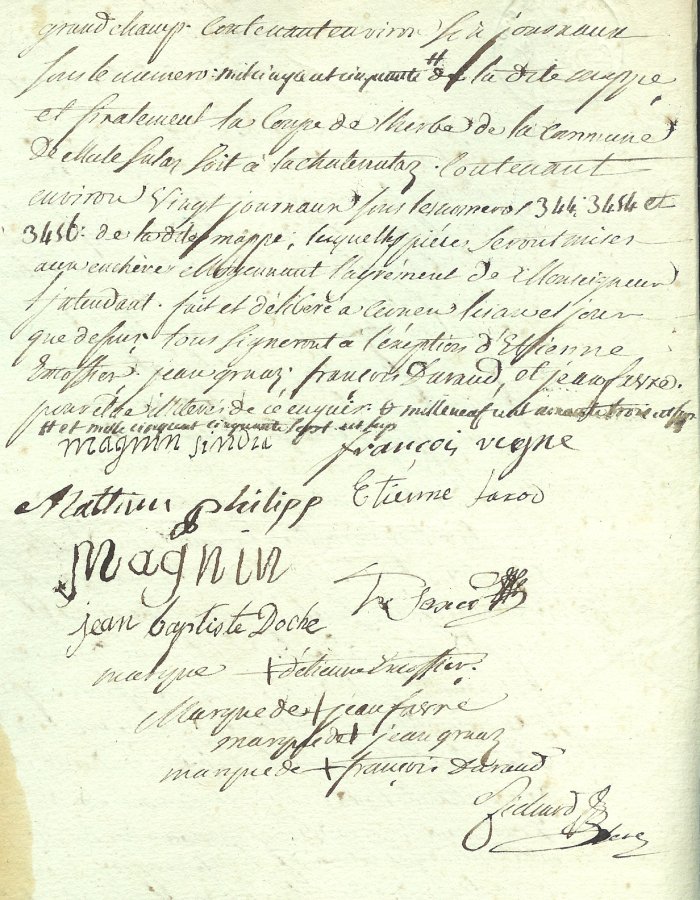 grandchamp. Contenant environ Six journaux
sous le numero: mil cinq cent cinquante # de la dite mappe
et finalement la Coupe de l'herbe de la Commune
De Mule soit à lachatenataz. Contenant
environ Vingt journaux sous les numeros 344: 3454 et
3456: de la dite mappe, lesquelles piéces Seront mises
aux enchère Moyennant l'agrément de Monseigneur
Intendant. fait et déliberé a les an et jour
que dessus. tous signeront a l'éxeption d'Etienne
jean graaz, françois Duraud, et jean favre.
pour etre illeterés de ce enquis. # mille neuf cent trois
# et mille cinquent cinquante sept
magnin sindic françois vegne
Mathieu philipp Etienne
magnin
jean baptiste Doche
marque + d'étienne
Marque de + jean favre
marque de + jean graaz
marque de + françois Duraud